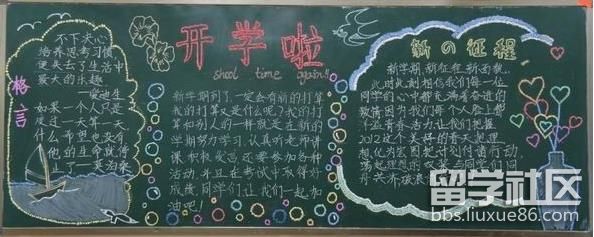 格言
不下决心
培养思考习惯
便失去了生活中
最大的乐趣
—爱迪生
如果一个人只是
度过一天算一天
什么希望也没有
他的生命就停
止了—莫泊桑
开学啦
shool time again!!
新学期到了一定会有新的打算
我的打算是什么呢?我的打
算和别人的一样就是在新的
学期努力学习,认真听老师讲
课积极发言还要参加各种
活动,并且在考试中取得好
成绩,同学们让我们一起加
油吧!
新の征程
新学期,新征程,新面貌,
此时此刻相信我们每一位
同学的心中都充满着奋进的
激情因为我们每个人脸上都
2012
留学社区
bbs.liuxue86.com